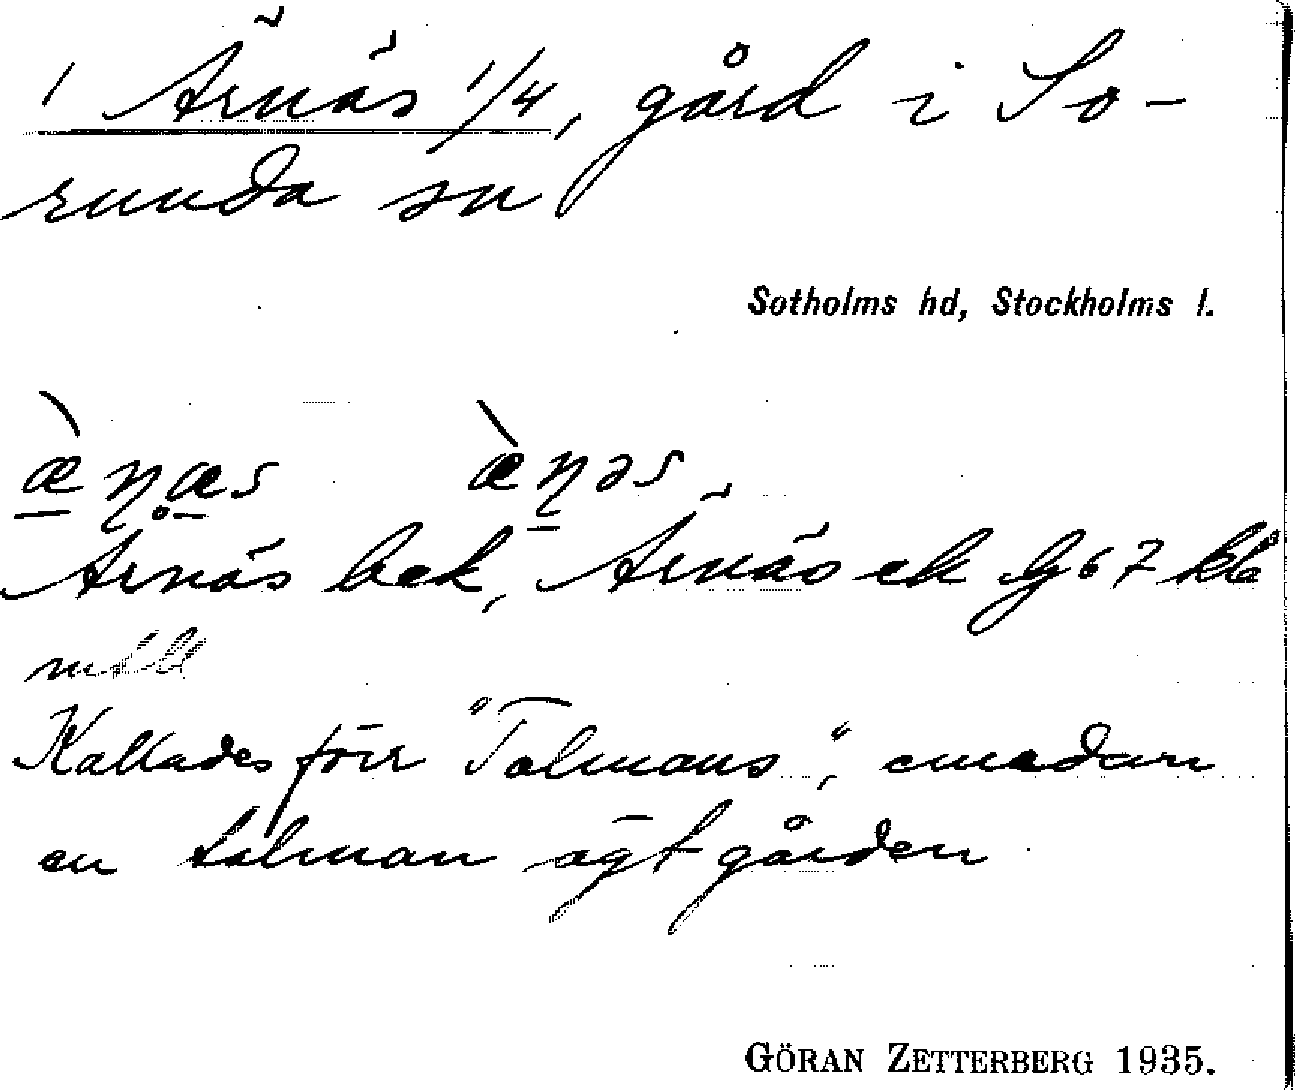 1 Ärnäs 1/4, gård i So-
runda sn
Sotholms hd, Stockholms l.
æ̀ɳæs æ̀ɳəs
Ärnäs bek, Ärnäs ek
Kallades förr "Tolmans", emedan
en tolman ägt gården
GÖRAN ZETTERBERG 1935.